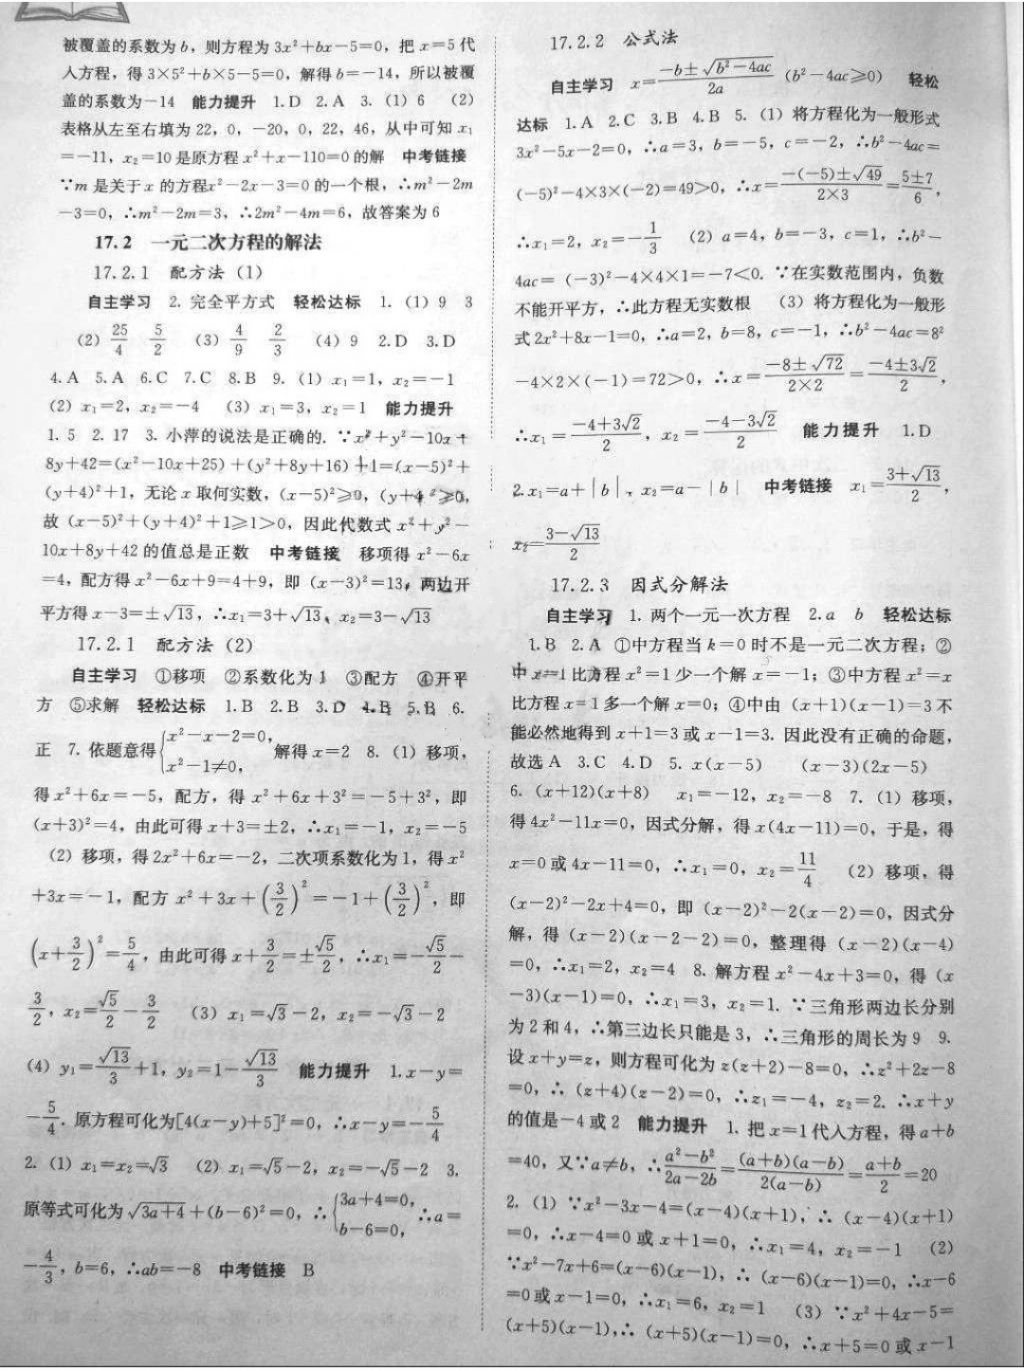 被覆盖的系数为b，则方程为3x²+bx-5=0，把x=5代
入方程，得3×5²+b×5-5=0，解得b=-14，所以被覆
盖的系数为-14 能力提升 1.D 2.A 3.（1）6 （2）
表格从左至右填为22，0，-20，0，22，46，从中可知x₁
=-11，x₂=10是原方程x²+x-110=0的解 中考链接
∵m是关于x的方程x²-2x-3=0的一个根，∴m²-2m
-3=0，∴m²-2m=3，∴2m²-4m=6，故答案为6
17.2 一元二次方程的解法
17.2.1 配方法（1）
自主学习 2.完全平方式 轻松达标 1.（1）9 3
（2）25/4 5/2 （3）4/9 2/3 （4）9 2.D 3.D
4.A 5.A 6.C 7.C 8.B 9.（1）x₁=1，x₂=-1
（2）x₁=2，x₂=-4 （3）x₁=3，x₂=1 能力提升
1.5 2.17 3.小萍的说法是正确的.∵x²+y²-10x+
8y+42=(x²-10x+25)+(y²+8y+16)+1=(x-5)²+
(y+4)²+1，无论x取何实数，(x-5)²≥0，(y+4)²≥0，
故(x-5)²+(y+4)²+1≥1>0，因此代数式x²+y²-
10x+8y+42的值总是正数 中考链接 移项得x²-6x
=4，配方得x²-6x+9=4+9，即(x-3)²=13，两边开
平方得x-3=±√13，∴x₁=3+√13、x₂=3-√13
17.2.1 配方法（2）
自主学习 ①移项 ②系数化为1 ③配方 ④开平
方 ⑤求解 轻松达标 1.B 2.B 3.D 4.B 5.B 6.
正 7.依题意得{x²-x-2=0，x²-1≠0，解得x=2 8.（1）移项，
得x²+6x=-5，配方，得x²+6x+3²=-5+3²，即
(x+3)²=4，由此可得x+3=±2，∴x₁=-1，x₂=-5
（2）移项，得2x²+6x=-2，二次项系数化为1，得x²
+3x=-1，配方x²+3x+(3/2)²=-1+(3/2)²，即
(x+3/2)²=5/4，由此可得x+3/2=±√5/2，∴x₁=-√5/2-
3/2，x₂=√5/2-3/2 （3）x₁=√3-2，x₂=-√3-2
（4）y₁=√13/3+1，y₂=1-√13/3 能力提升 1.x-y=
-5/4.原方程可化为[4(x-y)+5]²=0，∴x-y=-5/4
2.（1）x₁=x₂=√3 （2）x₁=√5-2，x₂=-√5-2 3.
原等式可化为√(3a+4)+(b-6)²=0，∴{3a+4=0，b-6=0，∴a=
-4/3，b=6，∴ab=-8 中考链接 B
17.2.2 公式法
自主学习 x=(-b±√(b²-4ac))/2a (b²-4ac≥0) 轻松
达标 1.A 2.C 3.B 4.B 5.（1）将方程化为一般形式
3x²-5x-2=0，∴a=3，b=-5，c=-2，∴b²-4ac=
(-5)²-4×3×(-2)=49>0，∴x=(-(-5)±√49)/(2×3)=(5±7)/6，
∴x₁=2，x₂=-1/3 （2）a=4，b=-3，c=1，∴b²-
4ac=(-3)²-4×4×1=-7<0.∵在实数范围内，负数
不能开平方，∴此方程无实数根 （3）将方程化为一般形
式2x²+8x-1=0，∴a=2，b=8，c=-1，∴b²-4ac=8²
-4×2×(-1)=72>0，∴x=(-8±√72)/(2×2)=(-4±3√2)/2，
∴x₁=(-4+3√2)/2，x₂=(-4-3√2)/2 能力提升 1.D
2.x₁=a+|b|，x₂=a-|b| 中考链接 x₁=(3+√13)/2，
x₂=(3-√13)/2
17.2.3 因式分解法
自主学习 1.两个一元一次方程 2.a b 轻松达标
1.B 2.A ①中方程当k=0时不是一元二次方程；②
中x=1比方程x²=1少一个解x=-1；③中方程x²=x
比方程x=1多一个解x=0；④中由(x+1)(x-1)=3不
能必然地得到x+1=3或x-1=3.因此没有正确的命题，
故选A 3.C 4.D 5.x(x-5) (x-3)(2x-5)
6.(x+12)(x+8) x₁=-12，x₂=-8 7.（1）移项，
得4x²-11x=0，因式分解，得x(4x-11)=0，于是，得
x=0或4x-11=0，∴x₁=0，x₂=11/4 （2）移项，得
(x-2)²-2x+4=0，即(x-2)²-2(x-2)=0，因式分
解，得(x-2)(x-2-2)=0，整理得(x-2)(x-4)
=0，∴x₁=2，x₂=4 8.解方程x²-4x+3=0，得(x
-3)(x-1)=0，∴x₁=3，x₂=1.∵三角形两边长分别
为2和4，∴第三边长只能是3，∴三角形的周长为9 9.
设x+y=z，则方程可化为z(z+2)-8=0，∴z²+2z-8
=0，∴(z+4)(z-2)=0，∴z₁=-4，z₂=2.∴x+y
的值是-4或2 能力提升 1.把x=1代入方程，得a+b
=40，又∵a≠b，∴(a²-b²)/(2a-2b)=(a+b)(a-b)/2(a-b)=(a+b)/2=20
2.（1）∵x²-3x-4=(x-4)(x+1)，∴(x-4)(x+1)
=0，∴x-4=0或x+1=0，∴x₁=4，x₂=-1 （2）
∵x²-7x+6=(x-6)(x-1)，∴(x-6)(x-1)=0，∴x-6
=0或x-1=0，∴x₁=6，x₂=1 （3）∵x²+4x-5=
(x+5)(x-1)，∴(x+5)(x-1)=0，∴x+5=0或x-1